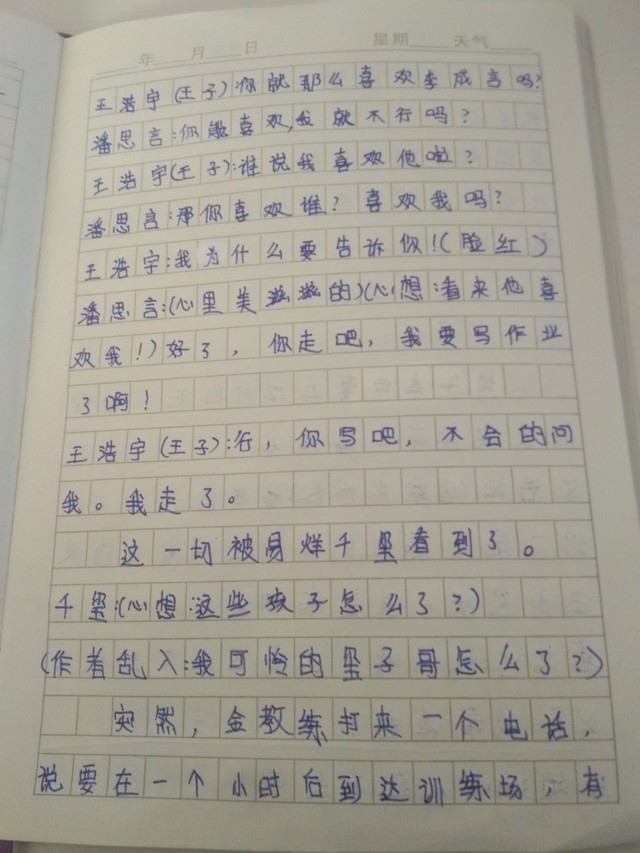 年 月 日 星期 天气
王浩宇(王子):你就那么喜欢李成言吗?
潘思言:你能喜欢,我就不行吗?
王浩宇(王子):谁说我喜欢他啦?
潘思言:那你喜欢谁?喜欢我吗?
王浩宇:我为什么要告诉你!(脸红)
潘思言:(心里美滋滋的)(心想:看来他喜
欢我!)好了,你走吧,我要写作业
了啊!
王浩宇(王子):行,你写吧,不会的问
我。我走了。
这一切被易烊千玺看到了。
千玺:(心想:这些孩子怎么了?)
(作者乱入:我可怜的玺子哥怎么了?)
突然,金教练打来一个电话,
说要在一个小时后到达训练场,有